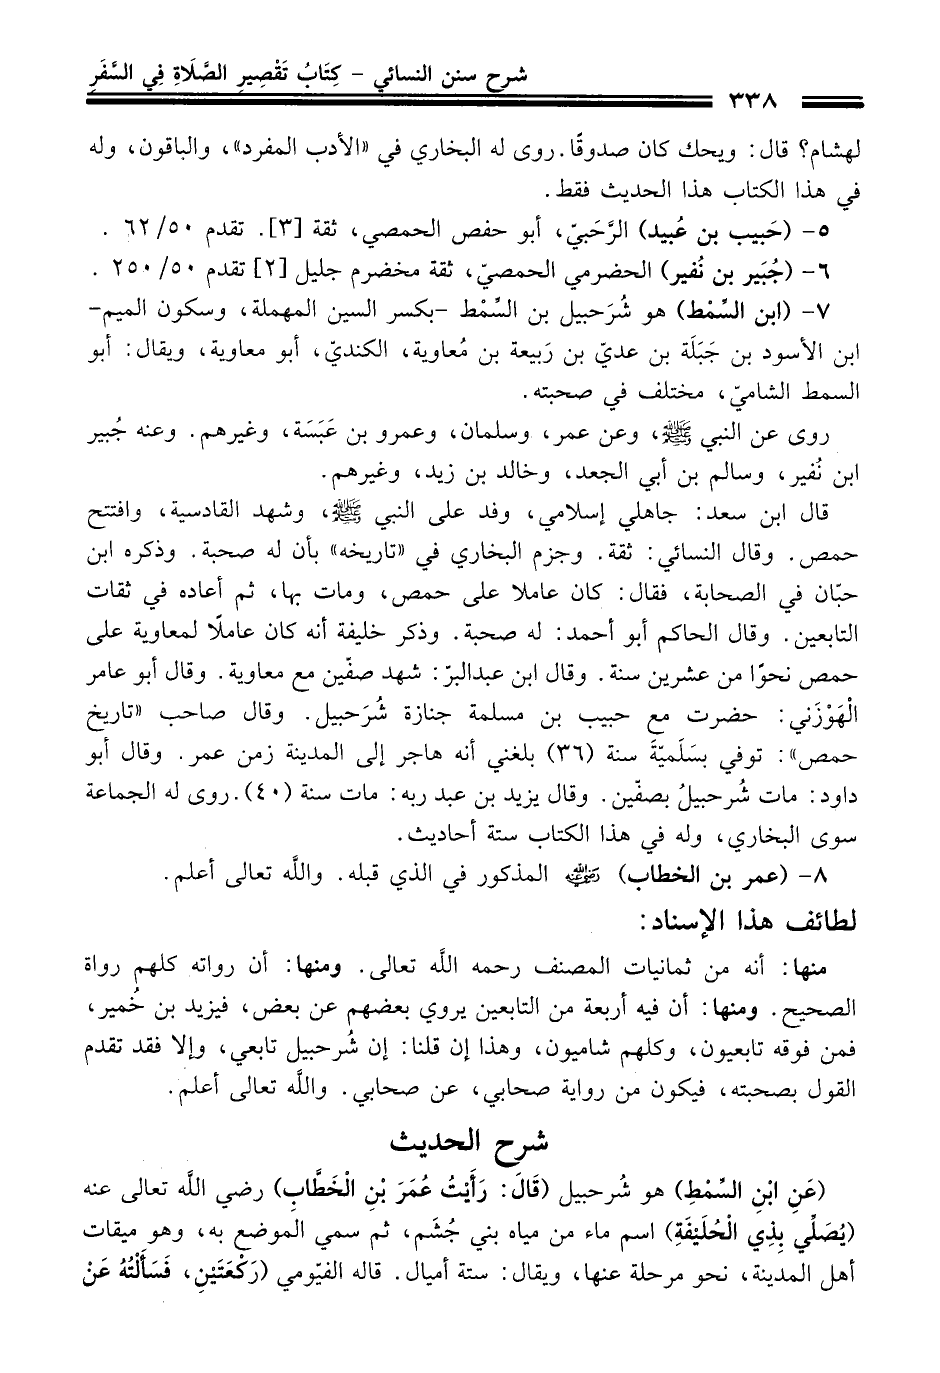 شرح سنن النسائي - كِتَابُ تَقْصِيرِ الصَّلَاةِ فِي السَّفَرِ
٣٣٨
لهشام؟ قال: ويحك كان صدوقًا. روى له البخاري في «الأدب المفرد»، والباقون، وله
في هذا الكتاب هذا الحديث فقط.
٥- (حَبيب بن عُبيد) الرَّحَبيّ، أبو حفص الحمصي، ثقة [٣]. تقدم ٥٠/ ٦٢ .
٦- (جُبَير بن نُفير) الحضرمي الحمصيّ، ثقة مخضرم جليل [٢] تقدم ٥٠/ ٢٥٠ .
٧- (ابن السِّمْط) هو شُرَحبيل بن السِّمْط -بكسر السين المهملة، وسكون الميم-
ابن الأسود بن جَبَلَة بن عديّ بن رَبيعة بن مُعاوية، الكنديّ، أبو معاوية، ويقال: أبو
السمط الشاميّ، مختلف في صحبته.
روى عن النبي ﷺ، وعن عمر، وسلمان، وعمرو بن عَبَسَة، وغيرهم. وعنه جُبير
ابن نُفير، وسالم بن أبي الجعد، وخالد بن زيد، وغيرهم.
قال ابن سعد: جاهلي إسلامي، وفد على النبي ﷺ، وشهد القادسية، وافتتح
حمص. وقال النسائي: ثقة. وجزم البخاري في «تاريخه» بأن له صحبة. وذكره ابن
حبّان في الصحابة، فقال: كان عاملا على حمص، ومات بها، ثم أعاده في ثقات
التابعين. وقال الحاكم أبو أحمد: له صحبة. وذكر خليفة أنه كان عاملًا لمعاوية على
حمص نحوًا من عشرين سنة. وقال ابن عبدالبرّ: شهد صفّين مع معاوية. وقال أبو عامر
الْهَوْزَني: حضرت مع حبيب بن مسلمة جنازة شُرَحبيل. وقال صاحب «تاريخ
حمص»: توفي بسَلَميّةَ سنة (٣٦) بلغني أنه هاجر إلى المدينة زمن عمر. وقال أبو
داود: مات شُرحبيلُ بصفّين. وقال يزيد بن عبد ربه: مات سنة (٤٠). روى له الجماعة
سوى البخاري، وله في هذا الكتاب ستة أحاديث.
٨- (عمر بن الخطاب) رضي الله عنه المذكور في الذي قبله. واللَّه تعالى أعلم.
لطائف هذا الإسناد:
منها: أنه من ثمانيات المصنف رحمه اللَّه تعالى. ومنها: أن رواته كلهم رواة
الصحيح. ومنها: أن فيه أربعة من التابعين يروي بعضهم عن بعض، فيزيد بن خُمير،
فمن فوقه تابعيون، وكلهم شاميون، وهذا إن قلنا: إن شُرحبيل تابعي، وإلا فقد تقدم
القول بصحبته، فيكون من رواية صحابي، عن صحابي. واللَّه تعالى أعلم.
شرح الحديث
(عَنِ ابْنِ السِّمْطِ) هو شُرحبيل (قَالَ: رَأَيْتُ عُمَرَ بْنِ الْخَطَّابِ) رضي اللَّه تعالى عنه
(يُصَلِّي بِذِي الْحُلَيْفَةِ) اسم ماء من مياه بني جُشَم، ثم سمي الموضع به، وهو ميقات
أهل المدينة، نحو مرحلة عنها، ويقال: ستة أميال. قاله الفيّومي (رَكْعَتَيْنِ، فَسَأَلْتُهُ عَنْ